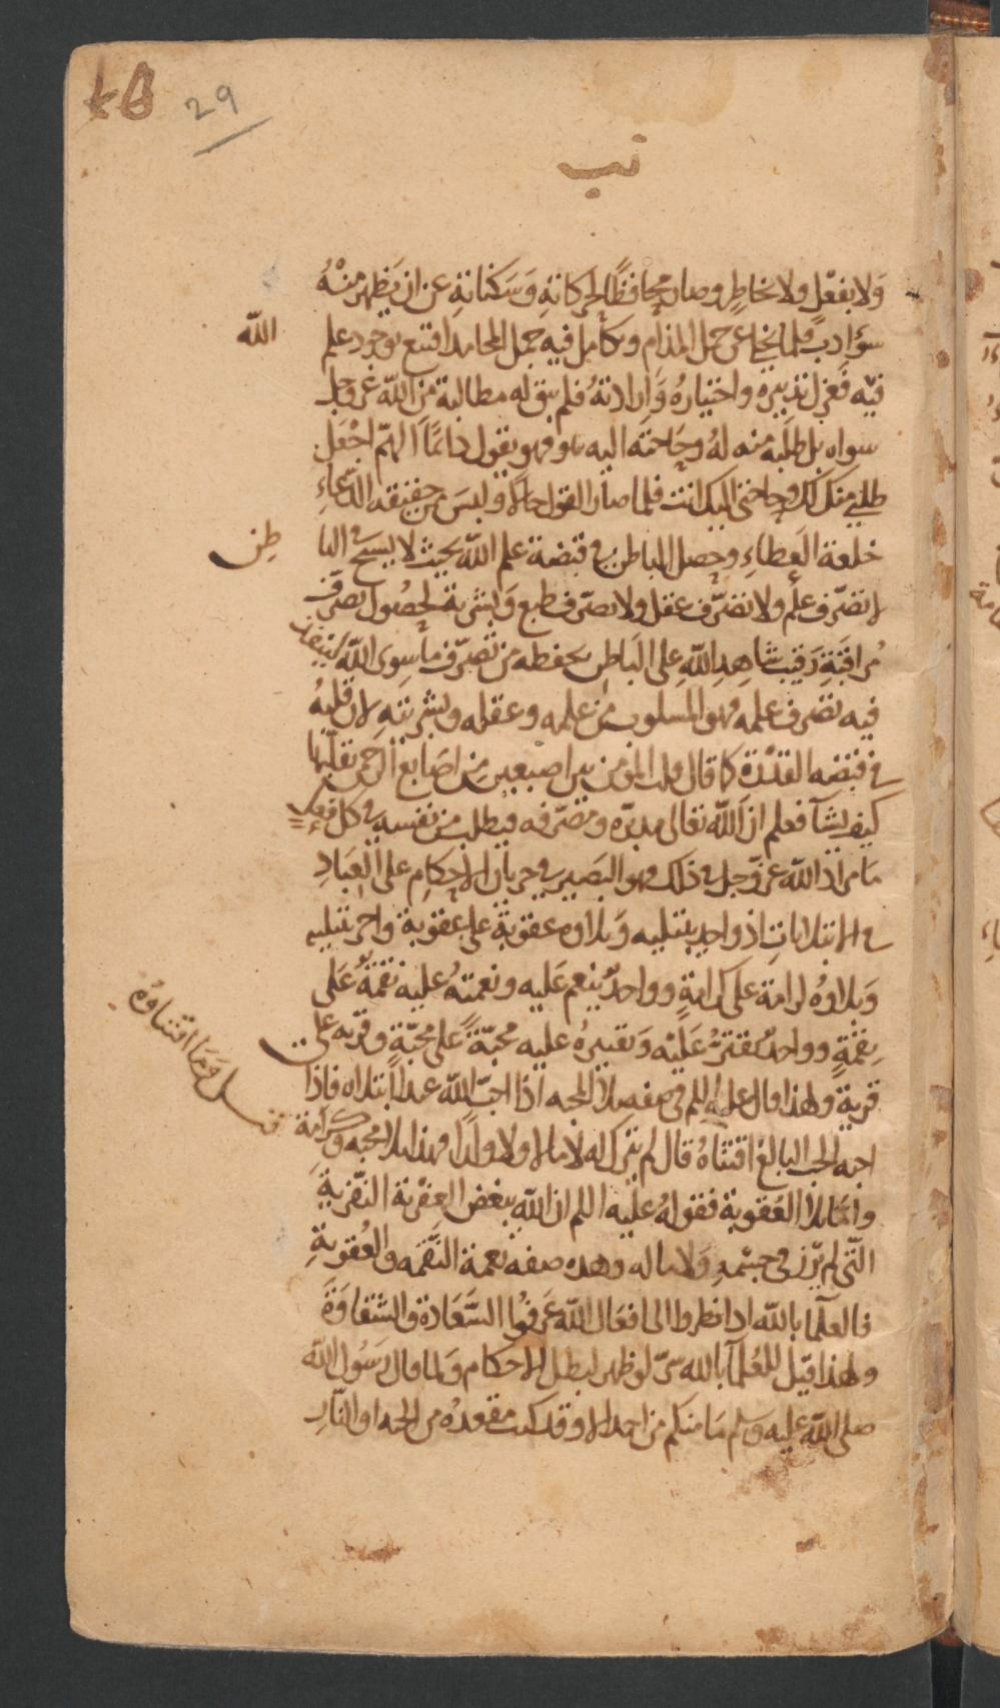 29
تب
ولا بفعل ولا بخاطر وصار محافظًا لحركاته وسكناته عن ان يظهر منه
سؤ ادب فلما تخلى عن حمل المذام وتكامل فيه جمل المحامد اقتنع بوجود علم الله
فيه فعزل تدبيره واختياره وارادته فلم يبق له مطالبة من الله عز وجل
سواه بل طلبه منه له وحاجته اليه هو فهو يقول دائمًا اللهم اجعل
طلبي منك لك وحاجتي اليك انت فلما صار القول حالا ولبس من حقيقة الدعاء
خلعة العطاء وحصل الباطن في قبضة علم الله بحيث لا يسيح في الباطن
لا تصرف علم ولا تصرف عقل ولا تصرف طبع وبشرية لحصول تصرف
مراقبة رقيب شاهد الله على الباطن يحفظه من تصرف ما سوى الله لينفذ
فيه تصرف علمه فهو المسلوب من علمه وعقله وبشريته لان قلبه
في قبضه القدرة كما قال قلب المؤمن بين اصبعين من اصابع الرحمن يقلبها
كيف يشآ فعلم ان الله تعالى مدبره ومصرفه فيطلب من نفسه في كل فعل
ما مراد الله عز وجل في ذلك فهو البصير في جريان الاحكام على العباد
في الابتلاات اذ واحد يبتليه وبلاوه عقوبة على عقوبة واخر يبتليه
وبلاوه كرامة على كرامة وواحد ينعم عليه ونعمته عليه نقمة على
نقمة وواحد يقتر عليه وتقتيره عليه محبة على محبة وقربه على
قربة ولهذا قال عليه السلم في صفه بلا المحبه اذا احب الله عبدا ابتلاه فاذا
احبه الحب البالغ اقتناه قيل وما اقتناوه قال لم يترك له لا مالا ولا ولدا فهذا بلا محبه وكرامة
واما بلا العقوبة فقوله عليه السلم ان الله يبغض العفرية النفرية
التي لم يرز في جسمه ولا ماله وهذه صفه نعمة النقمه والعقوبة
فالعلما بالله اذا نظروا الى افعال الله عرفوا السعادة والشقاوة
ولهذا قيل للعلما بالله سر لو ظهر لبطل الاحكام ولما قال رسول الله
صلى الله عليه وسلم ما منكم من احد الا وقد كتب مقعده من الجنه او النار